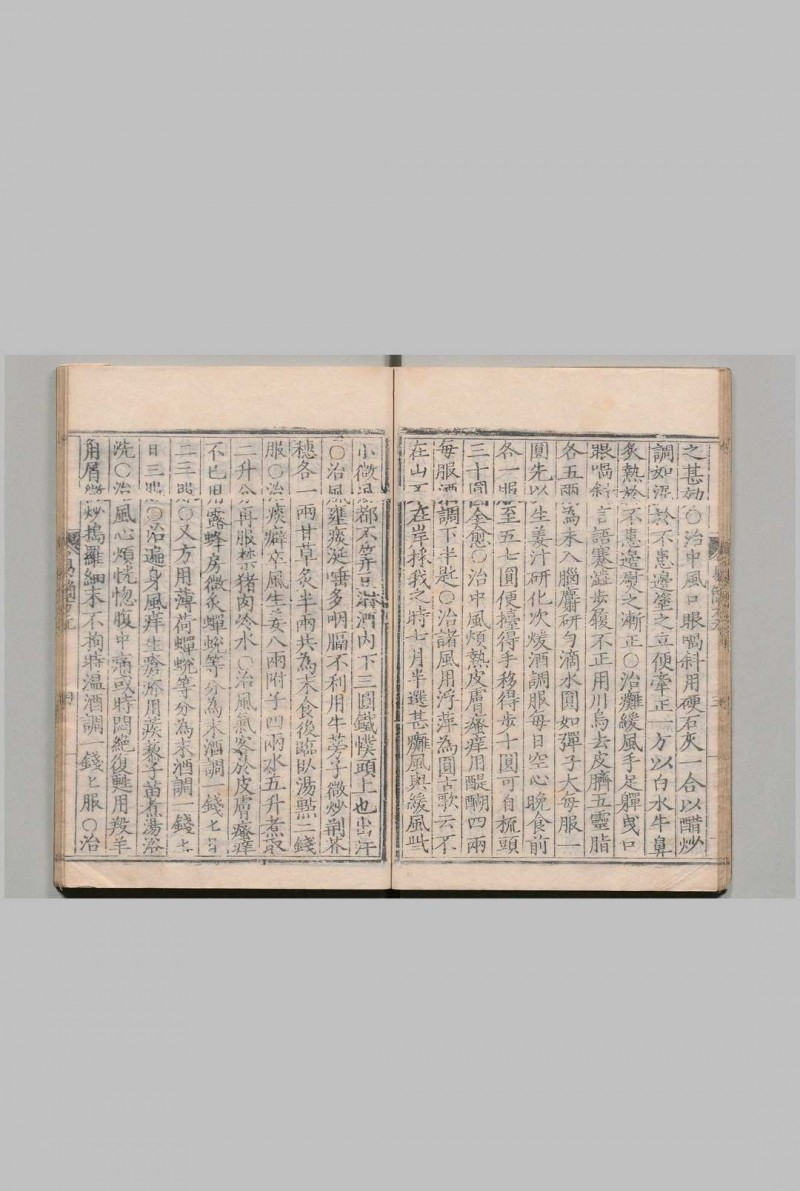 之甚〇治中風口眼喎斜用硬石灰一合以醋炒
調如於不患邊塗之立便牽正一方以白水牛鼻
炙熱於不患邊㷉之漸正〇治癱緩風手足軃曳口
眼喎斜言語蹇澁步履不正用川烏去皮臍五靈脂
各五兩為末入腦麝研勻滴水圓如彈子大每服一
圓先以生姜汁研化次煖酒調服每日空心晚食前
各一服至五七圓便擡得手移得步十圓可自梳頭
三十圓全愈〇治中風煩熱皮膚瘙痒用醍醐四兩
每服酒調下半匙〇治諸風用浮萍為圓古歌云不
在山不在岸採我之時七月半選甚癱風與緩風些
小微風都不筭豆淋酒內下三圓鐵幞頭上也出汗
〇治風壅痰涎唾多咽膈不利用牛蒡子微炒荆芥
穗各一兩甘草炙半兩共為末食後臨臥湯點二錢
服〇治痰癖卒風生姜八兩附子四兩水五升煮取
二升分再服禁猪肉冷水〇治風氣客於皮膚瘙痒
不已用露蜂房微炙蟬蛻等分為末酒調一錢匕日
二三服〇又方用薄荷蟬蛻等分為末酒調一錢匕
日三服〇治遍身風痒生瘡疥用蒺藜子苗煮湯浴
洗〇治風心煩恍惚腹中痛或時悶絕復甦用羖羊
角屑微炒搗羅細末不拘時温酒調一錢匕服〇治